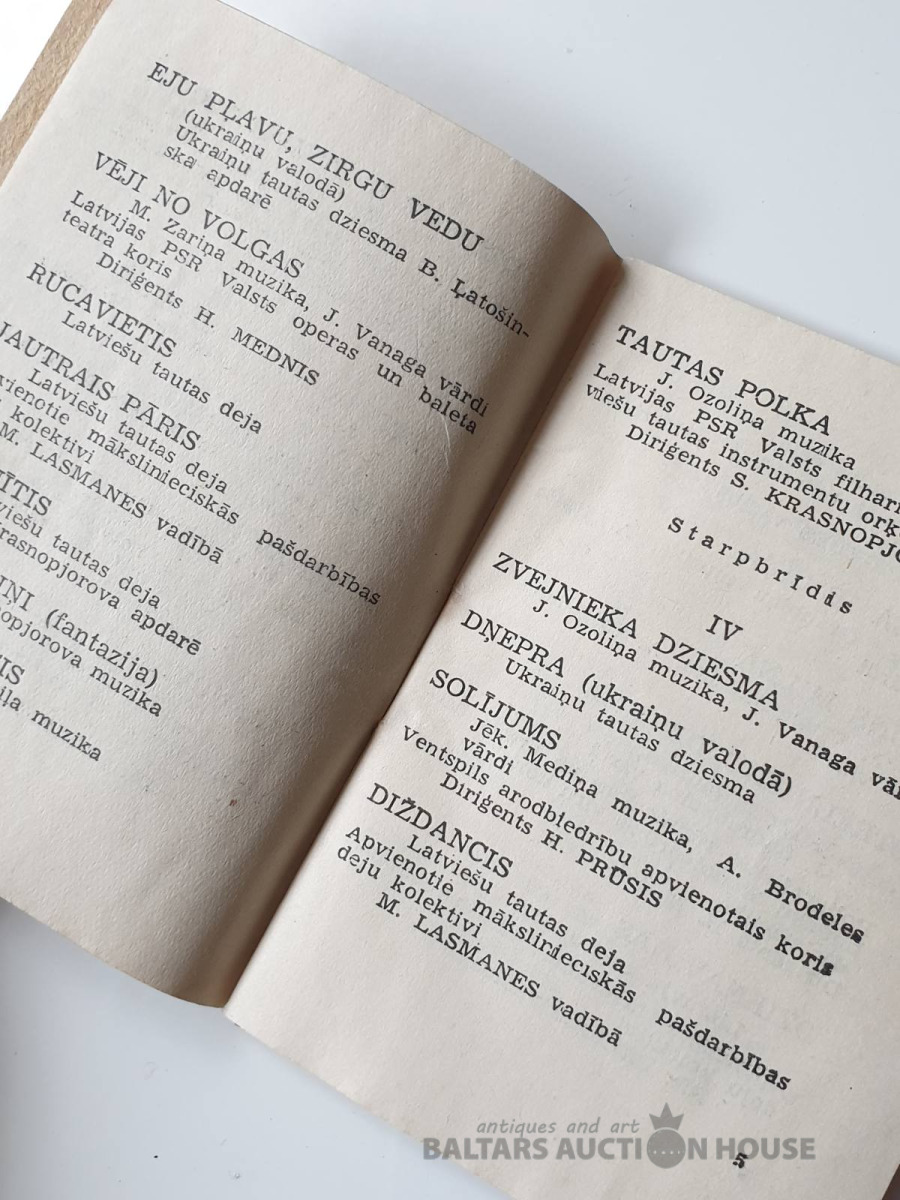 EJU PĻAVU, ZIRGU VEDU
(ukraiņu valodā)
Ukraiņu tautas dziesma B. Ļatošin-
ska apdarē
VĒJI NO VOLGAS
M. Zariņa muzika, J. Vanaga vārdi
Latvijas PSR Valsts operas un baleta
teatra koris
Diriģents H. MEDNIS
RUCAVIETIS
Latviešu tautas deja
JAUTRAIS PĀRIS
Latviešu tautas deja
mākslinieciskās pašdarbības
kolektivi
M. LASMANES vadībā
tautas deja
apdarē
(fantazija)
muzika
muzika
TAUTAS POLKA
J. Ozoliņa muzika
Latvijas PSR Valsts
viešu tautas instrumentu
Diriģents S.
Starpbrīdis
IV
ZVEJNIEKA DZIESMA
J. Ozoliņa muzika, J. Vanaga
DŅEPRA (ukraiņu valodā)
Ukraiņu tautas dziesma
SOLĪJUMS
Jēk. Mediņa muzika, A. Brodeles
vārdi
Ventspils arodbiedrību apvienotais koris
Diriģents H. PRŪSIS
DIŽDANCIS
Latviešu tautas deja
Apvienotie mākslinieciskās pašdarbības
deju kolektivi
M. LASMANES vadībā
5
antiques and art
BALTARS AUCTION HOUSE